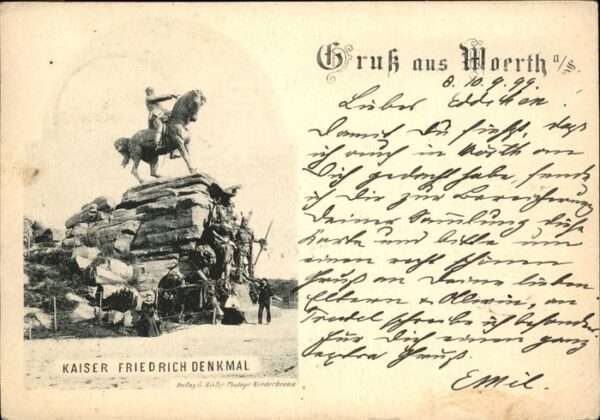 Gruß aus Woerth a/S.
8.10.9.99.
Lieber
Damit Du siehst, daß
ich auch in Wörth an
Dich gedacht habe, sende
ich Dir zur Bereicherung
Deiner Sammlung diese
Karte und bitte um
einen recht schönen
Gruß an Deine lieben
Eltern & an
schreibe ich besonders.
Für Dich einen ganz
extra Gruß
Emil.
KAISER FRIEDRICH DENKMAL
Verlag v. Photogr. Niederbronn